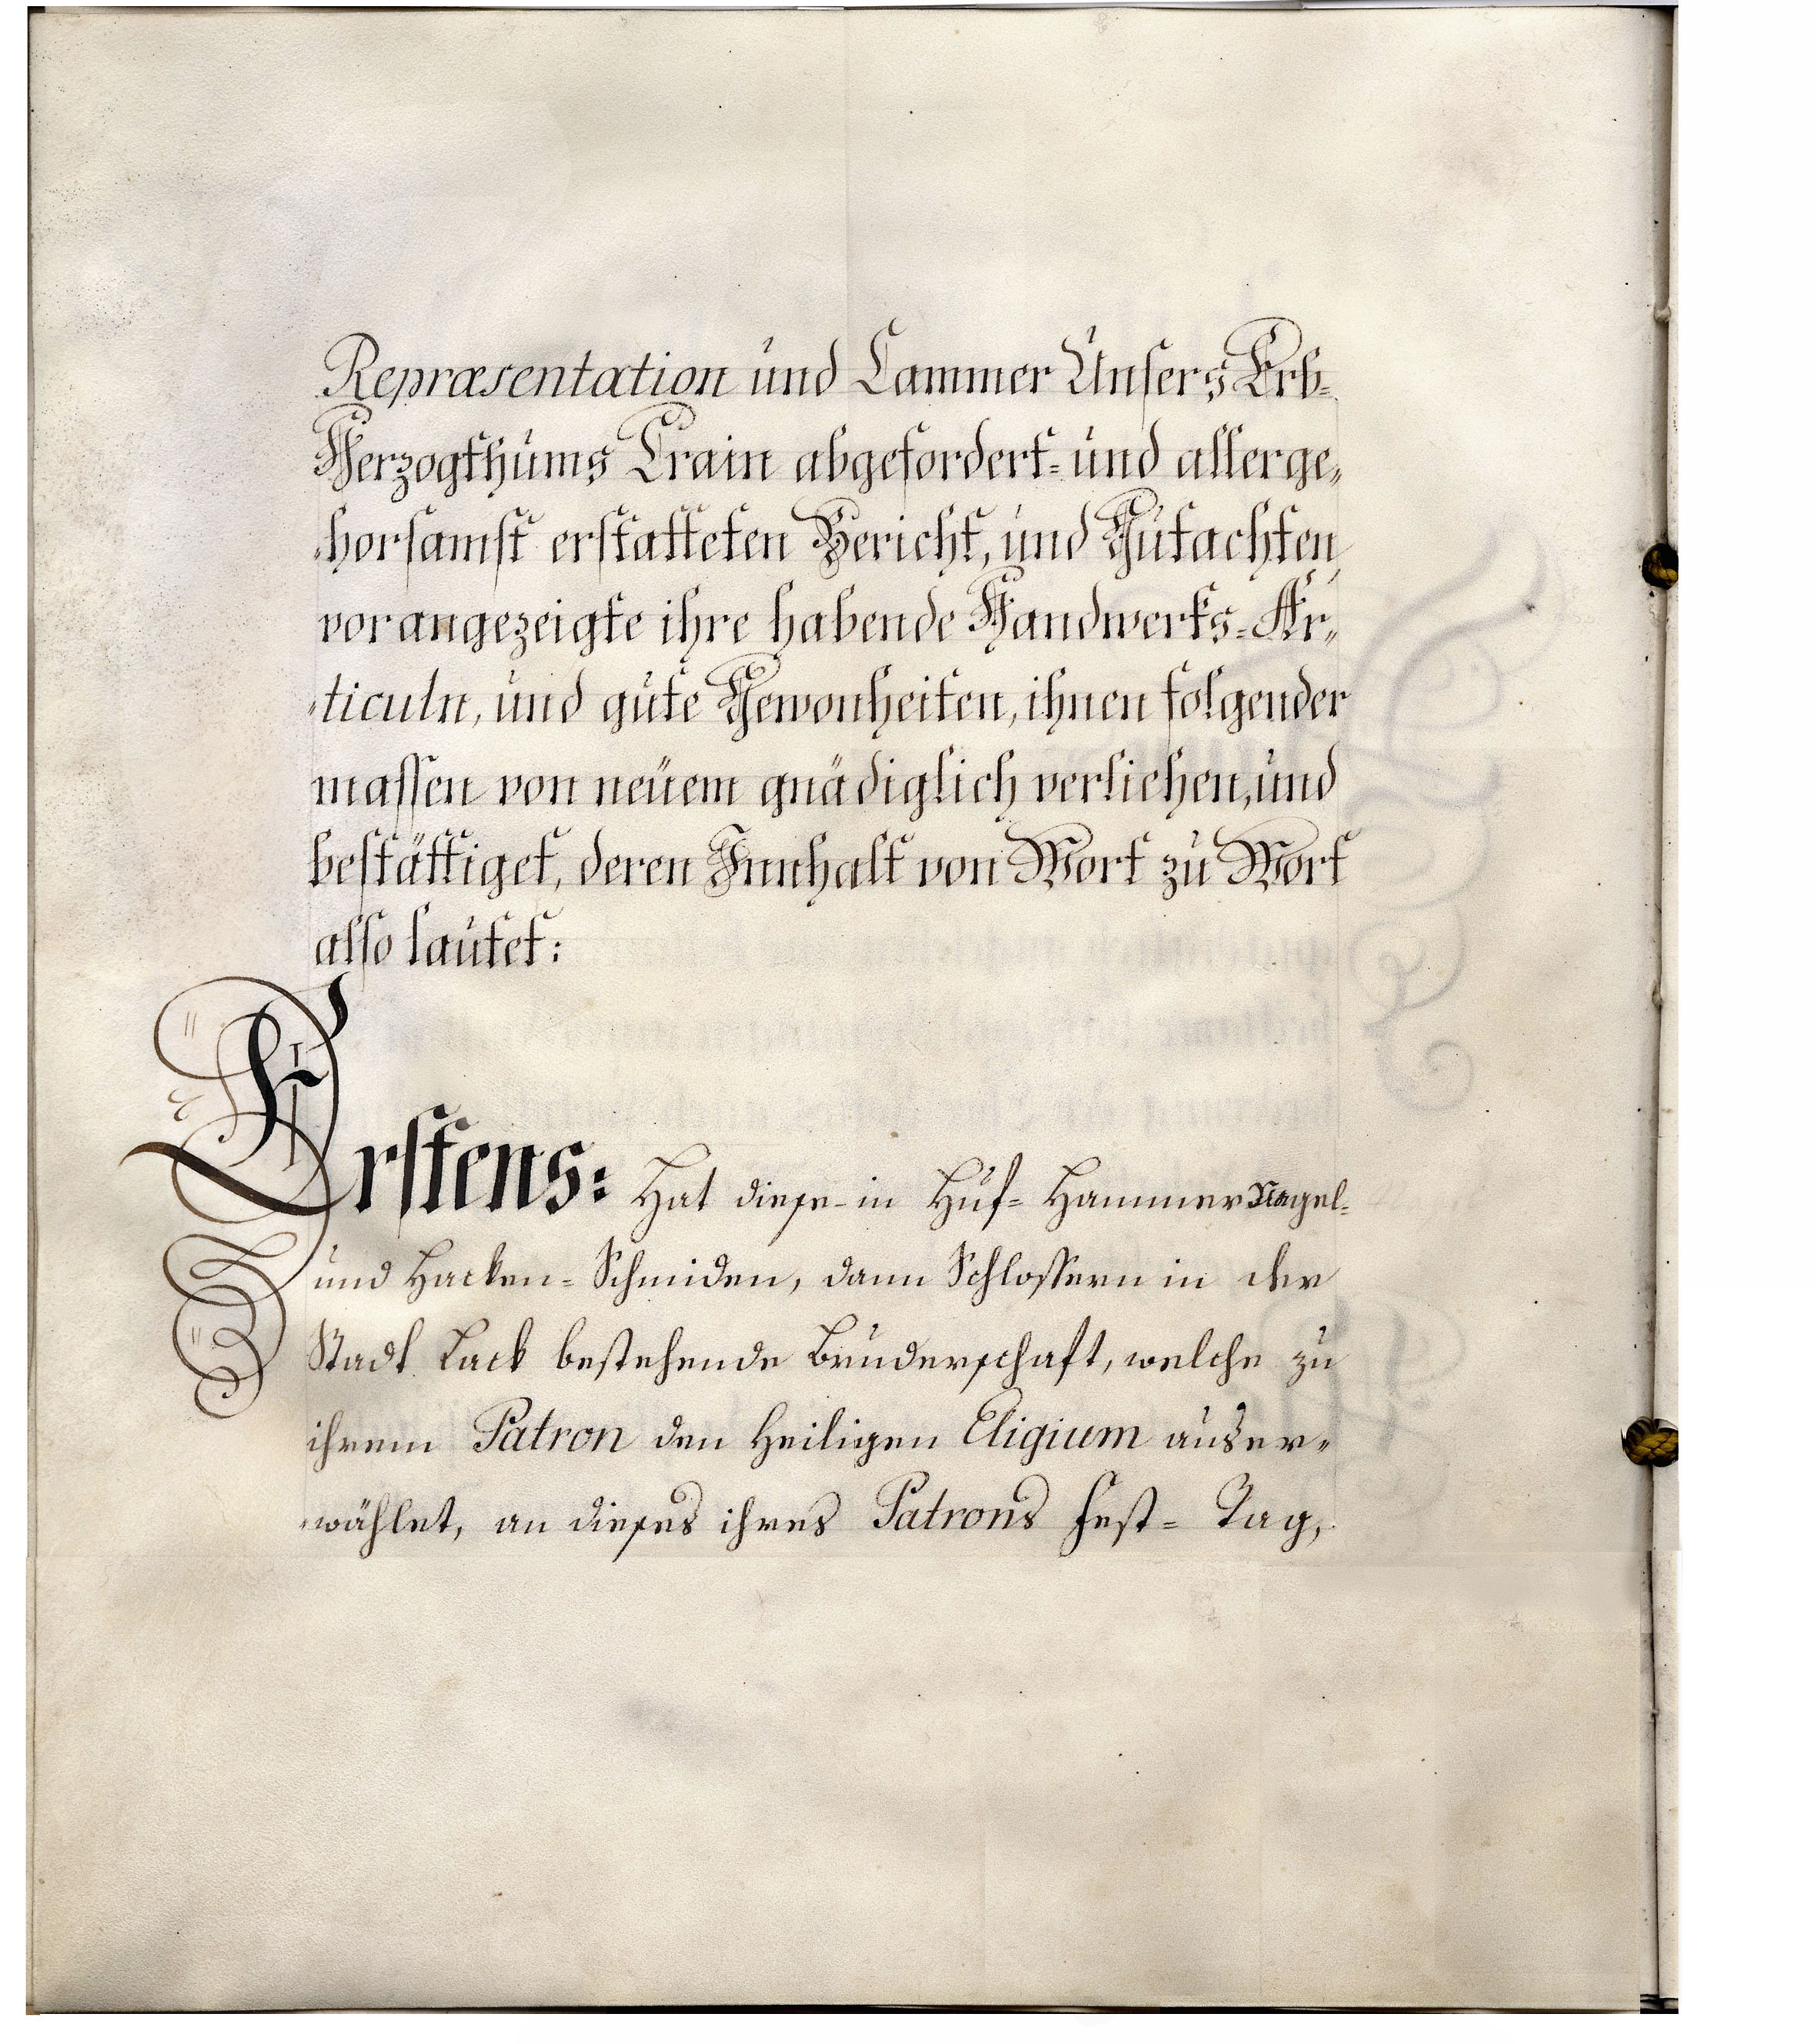 Repræsentation und Cammer Unsers Erb=
Herzogthums Crain abgefordert= und allerge„
„horsamst erstatteten Bericht, und Gutachten,
vorangezeigte ihre habende Handwerks=Ar„
„ticuln, und gute Gewonheiten, ihnen folgender
massen von neuem gnädiglich verliehen, und
bestättiget, deren Innhalt von Wort zu Wort
also lautet:
Erstens: Hat diese-in Huf= Hammer Nagel=
und Hacken= Schmiden, dann Schlossern in der
Stadt Lack bestehende Bruderschaft, welche zu
ihrem Patron den Heiligen Eligium auser„
„wählet, an dieses ihres Patrons Fest= Tag,